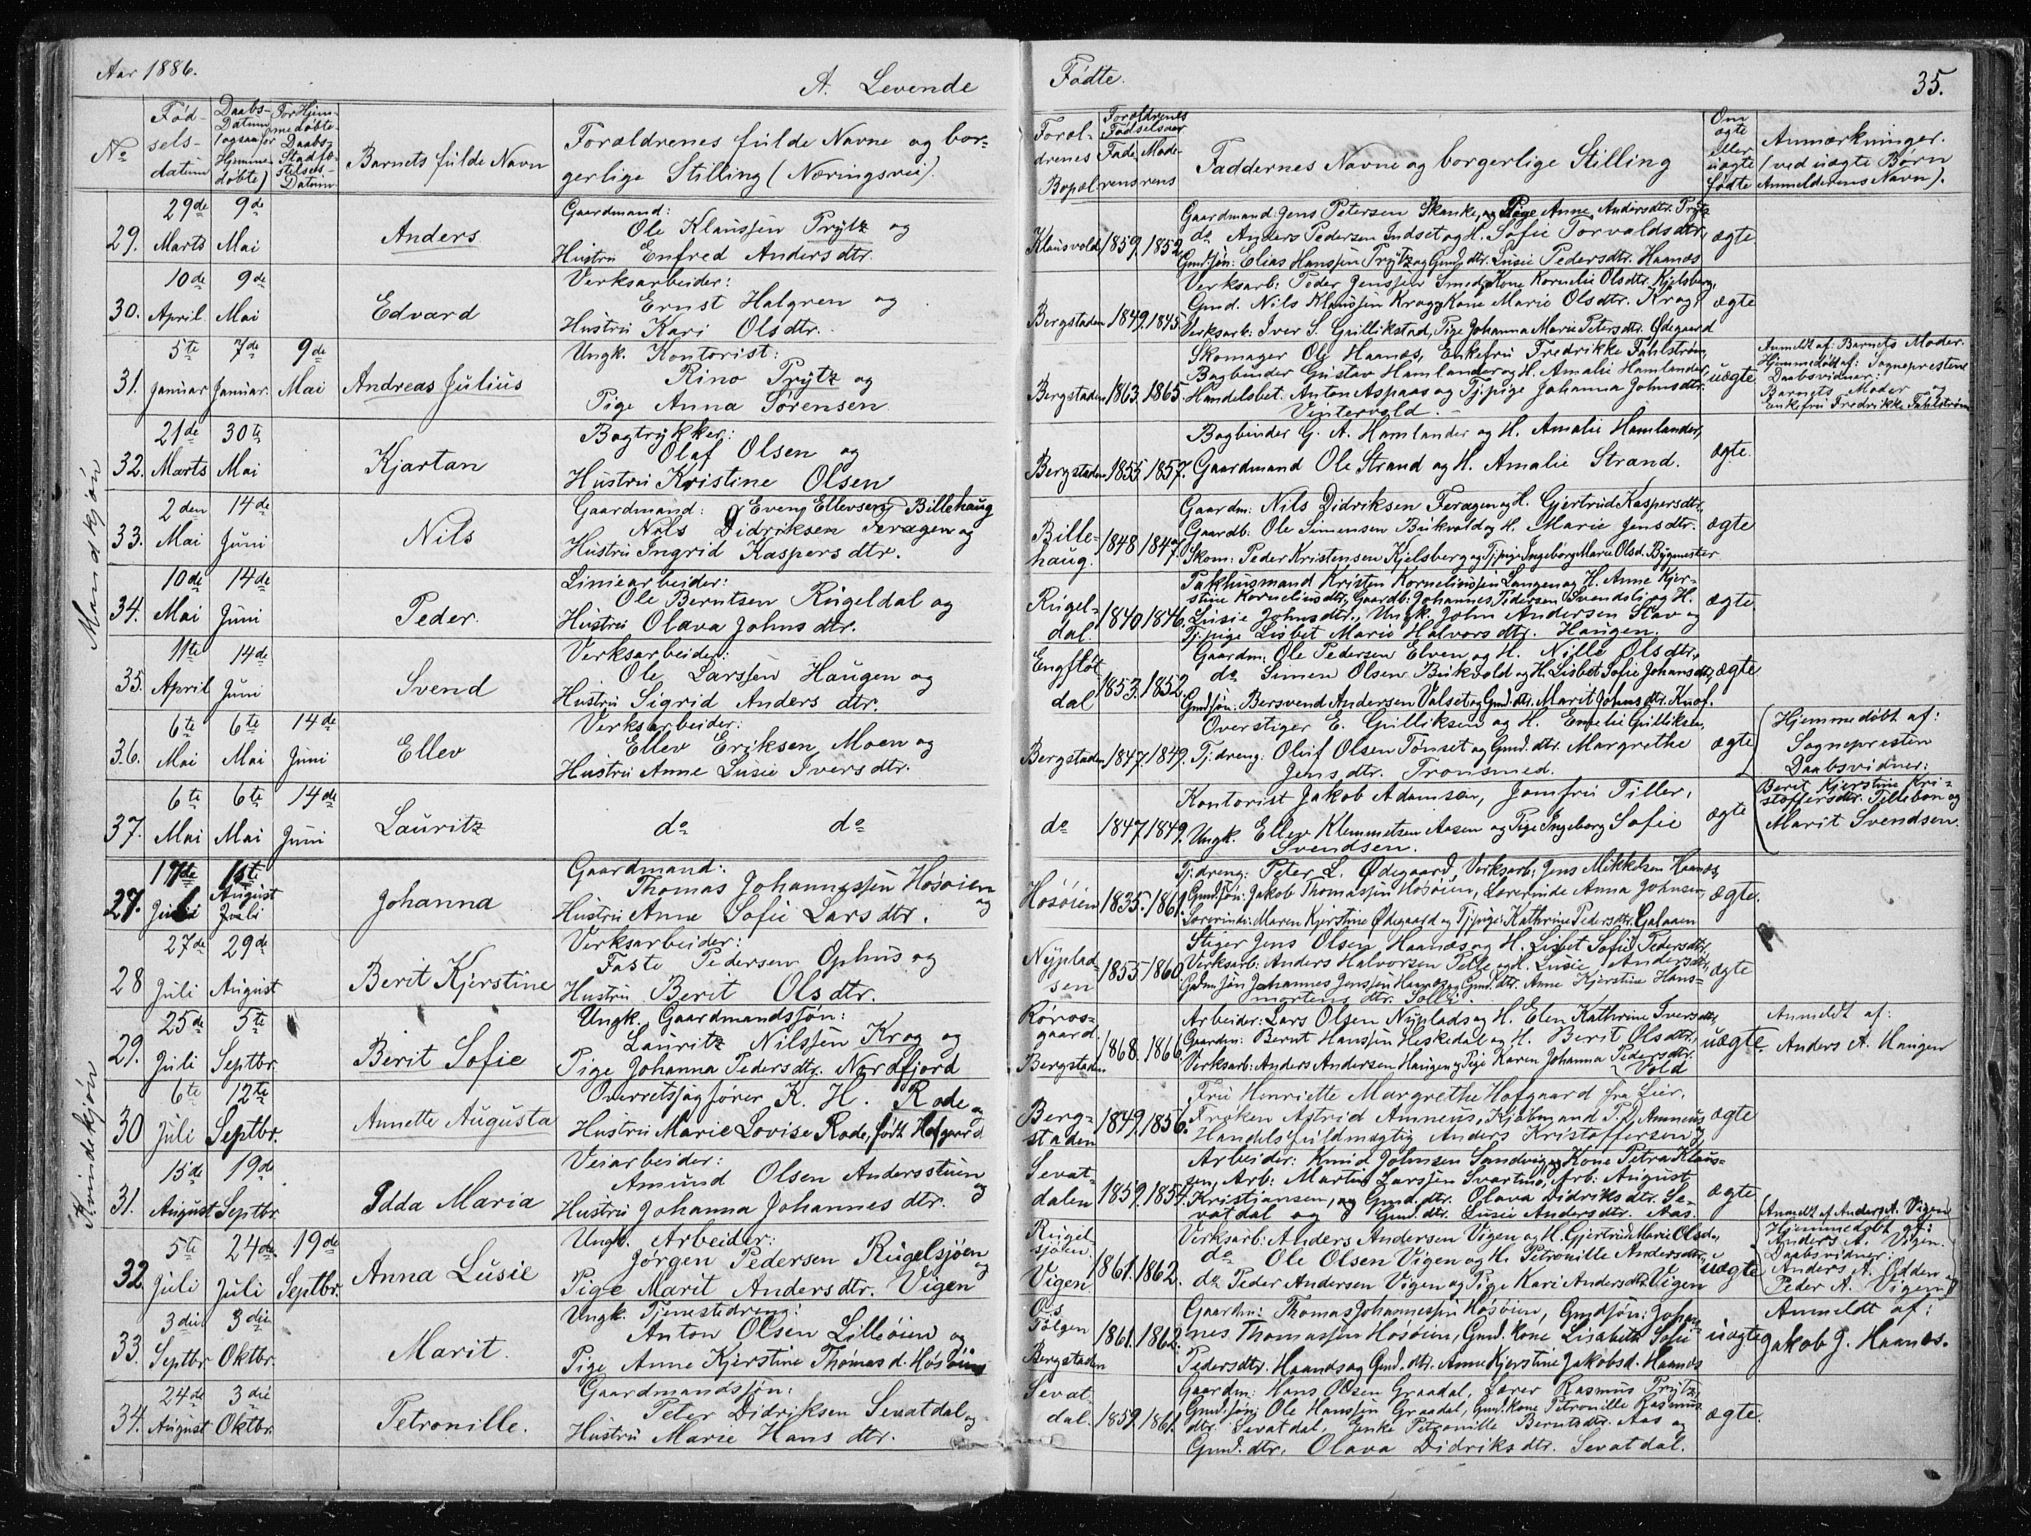 Aar 1886.
A. Levende Fødte.
35.
No
Fød-
sels-
datum
Daabs-
Datum
(ogsaa for
Hjemme-
døbte)
For Hjem-
medøbte
Daabs-
Stadfæ-
stelses-
Datum
Barnets fulde Navn
Forældrenes fulde Navne og bor-
gerlige Stilling (Næringsvei).
Foræl-
drenes
Bopæl
Forældrenes
Fødselsaar
Fade-
rens
Mode-
rens
Faddernes Navne og borgerlige Stilling
Om
ægte
eller
uægte
fødte
Anmærkninger.
(ved uægte Børn
Anmelderens Navn).
Mandkjøn
29. 29de Marts 9de Mai
Anders
Gaardmand:
Ole Klaussen Prÿtz og
Hustru Enfred Andersdtr.
Klausvold 1859. 1852.
Gaardmand: Jens Petersen Skanke, og Pige Anne Andersdtr. Prÿtz
do Anders Pedersen Indset og H. Sofie Torvaldsdtr,
Gmdsøn: Elias Hanssen Prÿtz og Gmd.dtr. Lusie Pedersdtr. Haanæs
ægte
30. 10de April 9de Mai
Edvard
Verksarbeider:
Ernst Halgren og
Hustru Kari Olsdtr.
Bergstaden 1849. 1845.
Verksarb: Peder Jenssen Smed, Kone Kornelie Olsdtr. Kjelsberg,
Gmd. Nils Klaussen Krog, Kone Marie Olsdtr. Krog,
Verksarb: Iver S. Gullikstad, Pige Johanna Marie Petersdtr. Ødegaard
ægte
31. 5te Januar 7de Januar. 9de Mai
Andreas Julius
Ungk. Kontorist:
Rino Prÿtz og
Pige Anna Sørensen
Bergstaden 1863. 1865.
Skomager Ole Haanæs, Enkefru Fredrikke Fahlstrøm,
Bagbinder Gustav Hamlander og H. Amalie Hamlander,
Handelsbet. Anton Aspaas og Tj. pige Johanna Johnsdtr.
Vintervold.
uægte
Anmeldt af: Barnets Moder.
Hjemmedøbt af: Sognepresten
Daabsvidner:
Barnets Moder og
Enkefru Fredrikke Fahlstrøm
32. 21de Marts 30te Mai
Kjartan
Bogtrykker:
Olaf Olsen og
Hustru Kristine Olsen
Bergstaden 1855. 1857.
Bagbinder G. A. Hamlander og H. Amalie Hamlander,
Gaardmand Ole Strand og H. Amalie Strand.
ægte.
33. 2den Mai 14de Juni
Nils
Gaardmand: Even Ellevsen Billehaug
Nils Didriksen Feragen og
Hustru Ingrid Kaspersdtr.
Bille-
haug. 1848 1847.
Gaardm: Nils Didriksen Feragen og H. Gjertrud Kaspersdtr,
Gaardb: Ole Simensen Bukvold og H. Marie Jensdtr.
Skom: Peder Kristensen Kjelsberg og Tj. pige Ingeborg Marie Olsd. Bygmester
ægte
34. 10de Mai 14de Juni
Peder.
Liniearbeider:
Ole Berntsen Rugeldal og
Hustru Olava Johnsdtr.
Rugel-
dal. 1840 1846.
Pakhusmand Kristen Korneliussen Langen og H. Anne Kjer-
stine Korneliusdtr, Gaardb: Johannes Pedersen Svendsli og H.
Lusie Johnsdtr., Ungk. John Andersen Stav og
Tj. pige Lisbet Marie Halvorsdtr. Haugen.
ægte.
35. 11te April 14de Juni
Svend
Verksarbeider:
Ole Larssen Haugen og
Hustru Sigrid Andersdtr.
Engfløt
dal 1853. 1852.
Gaardm: Ole Pedersen Elven og H. Nille Olsdtr.,
do Simen Olsen Bukvold og H. Lisbet Sofie Johansdtr,
Gmdsøn: Bersvend Andersen Valset og Gmd.dtr. Marit Johnsdtr. Knof.
ægte
36. 6te Mai 6te Mai 14de Juni
Ellev
Verksarbeider:
Ellev Eriksen Moen og
Hustru Anne Lusie Iversdtr.
Bergstaden 1847. 1849.
Overstiger E. Gulliksen og H. Emelie Gulliksen,
Tj. dreng: Oluf Olsen Tønset og Gmd. dtr. Margrethe
Jensdtr. Tronsmed.
ægte
Hjemmedøbt af:
Sognepresten
Daabsvidner:
Berit Kjerstine Kri-
stoffersdtr. Tillebon og
Marit Svendsen.
37. 6te Mai 6te Mai 14de Juni
Lauritz
do do
do 1847. 1849.
Kontorist Jakob Adamsen, Jomfru Tiller,
Ungk. Ellev Klemmetsen Aasen og Pige Ingeborg Sofie
Svendsen.
ægte
Kvindekjøn
27. 17de Juli 1ste August Juli
Johanna
Gaardmand:
Thomas Johannessen Hosøien og
Hustru Anne Sofie Larsdtr.
Hosøien 1835. 1861.
Tj. dreng: Peter L. Ødegaard, Verksarb: Jens Mikkelsen Haanæs,
Gmdsøn: Jakob Thomassen Hosøien, Lærerinde Anna Johnsen,
Lærerinde: Maren Kjerstine Ødegaard og Tj. pige: Kathrine Pedersdtr. Galaaen
ægte.
28 27de Juli 29de August
Berit Kjerstine
Verksarbeider:
Faste Pedersen Ophus og
Hustru Berit Olsdtr.
Nyplad-
sen 1855 1860.
Stiger Jens Olsen Haanæs og H. Lisbet Sofie Pedersdtr,
Verksarb: Anders Halvorsen Pelle og H. Lusie Andersdtr,
Gdmsøn Johannes Jenssen Haanæs og Gmd. dtr. Anne Kjerstine Hans-
mortensdtr. Solli.
ægte
29. 25de Juli 5te Septbr.
Berit Sofie
Ungk. Gaardmandssøn:
Lauritz Nilssen Krog og
Pige Johanna Pedersdtr. Nordfjord
Røros-
gaard.
Bergstaden 1868. 1866.
Arbeider: Lars Olsen Nyplads og H. Elen Kathrine Iversdtr,
Gaardm: Bernt Hanssen Heskedal og H. Berit Olsdtr,
Verksarb: Anders Andersen Haugen og Pige Karen Johanna Pedersdtr.
Vold
uægte.
Anmeldt af:
Anders A. Haugen
30 6te Juli 12te Septbr.
Annette Augusta
Overretssagfører K. H. Rode og
Hustru Marie Lovise Rode, født Hofgaard
Berg-
staden 1849. 1856.
Fru Henriette Margrethe Hofgaard fra Lier,
Frøken Astrid Amneus, Kjøbmand T. Amneus
Handelsfuldmægtig Anders Kristoffersen
ægte
31. 15de August 19de Septbr.
Idda Maria
Veiarbeider:
Amund Olsen Andersstuen og
Hustru Johanna Johannesdtr.
Sevat-
dalen 1859. 1854.
Arbeider: Knud Johnsen Sandvig, og Kone Petra Klaus-
sen, Arb: Martin Larssen Svartmo, Arb: August
Kristiansen, og Gmd. dtr. Olava Didriksdtr. Se-
vatdal og Gmd. dtr. Lusie Andersdtr. Aas.
ægte
32 5te Juli 24de Juli 19de Septbr.
Anna Lusie
Ungk. Arbeider:
Jørgen Pedersen Rugelsjøen og
Pige Marit Andersdtr. Vigen
Rugel-
sjøen.
Vigen 1861. 1862.
Verksarb: Anders Andersen Vigen og H. Gjertrud Marie Olsdtr,
do Ole Olsen Vigen og H. Petronille Andersdtr,
do Peder Andersen Vigen og Pige Kari Andersdtr. Vigen
uægte
Anmeldt af Anders A. Vigen
Hjemmedøbt af:
Anders A. Vigen.
Daabsvidner:
Anders A. Ødden og
Peder A. Vigen
33. 3die Septbr 3die Oktbr.
Marit.
Ungk. Tjenestedreng:
Anton Olsen Lilleøien og
Pige Anne Kjerstine Thomasd. Hosøien
Os
Tolgen
Bergstaden 1861. 1862.
Gaardm: Thomas Johannessen Hosøien, Gmdsøn: Johan-
nes Thomassen Hosøien, Gmd. kone Lisabeth Sofie
Pedersdtr. Haanæs og Gmd. dtr. Anne Kjerstine Jakobsd. Haanæs
uægte
Anmeldt af:
Jakob J. Haanæs.
34. 24de August 3die Oktbr.
Petronille.
Gaardmandssøn:
Peter Didriksen Sevatdal og
Hustru Marie Hansdtr.
Sevat-
dal. 1859. 1861.
Gaardm: Hans Olsen Graadal, Lærer Rasmus Prÿtz,
Gmdsøn: Ole Hanssen Graadal, Gmd. kone Petronille Rasmus-
dtr. Sevatdal, Enke Petronille Berntsdtr. Aas og
Gmd. dtr. Olava Didriksdtr. Sevatdal.
ægte.